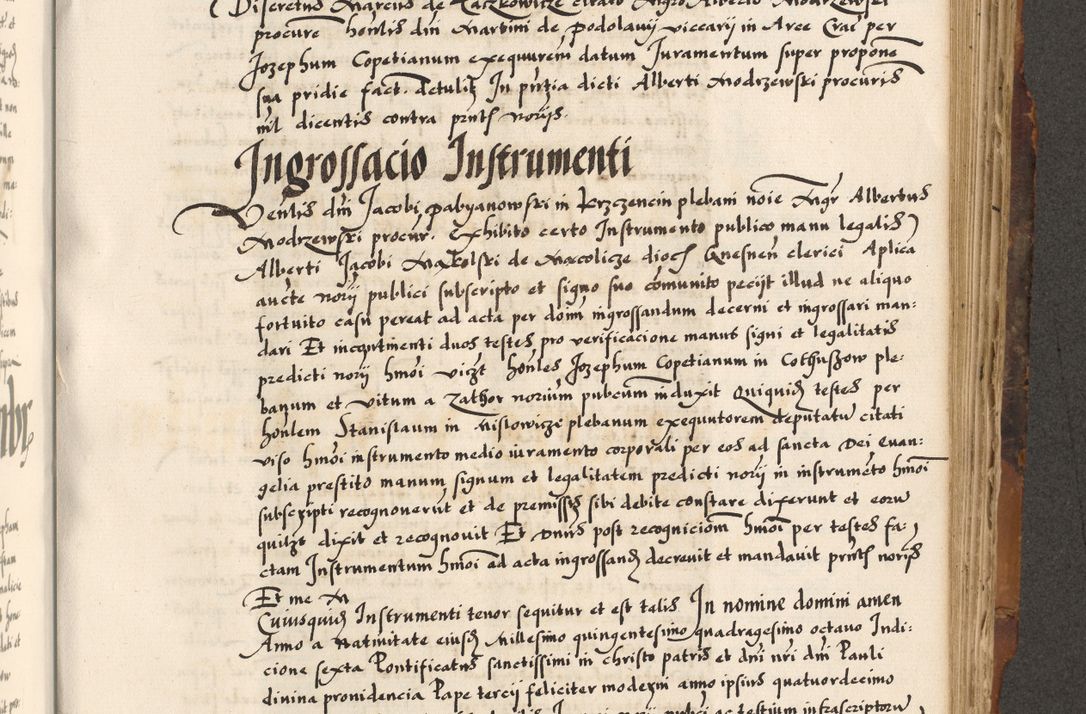 Discretus Marcus de Raczkowicze citato Mgro Alberto Modrzewski
procure honlis dni Martini de Podolany vicarii in Arce Crac per
Jozephum Copetianum exequutem datum Juramentum super propone
sua pridie fact. detulit In pntia dicti Alberti Modrzewski procuris
nil dicentis contra pntes norijs.
Ingrossacio Instrumenti
Venlis dni Jacobi Pabyanowski in Krzczencin plebani noie Mgr Albertus
Modrzewski procur. Exhibito certo Instrumento publico manu legalis
Alberti Jacobi Makolski de Macolicze dioc Gnesnen clerici Aplica
aucte norij publici subscripto et signo suo comunito pecijt illud ne aliquo
fortuito casu pereat ad acta per dom ingrossandum decerni et ingrossari man-
dari Et incontinenti duos testes pro verificacione manus signi et legalitatis
predicti norij hmoi vizt honles Jozephum Copetianum in Cothuszow ple:
banum et vitum a Zathor norium pubcum induxit Quiquid testes per
honlem Stanislaum in Mislowicze plebanum exequutorem deputatu citati
viso hmoi instrumento medio iuramento corporali per eos ad sancta Dei Euan:
gelia prestito manum signum et legalitatem predicti norij in instrumeto hmoi
subscripti recognouerut et de premissis sibi debite constare dixerunt et eoru
quilzt dixit et recognouit Et Dnus post recognicionem hmoi per testes fa:
ctam Instrumentum hmoi ad acta ingrossand decreuit et mandauit pntes noris
Et me M
Cuiusquid Instrumenti tenor sequitur et est talis. In nomine domini amen
Anno a Natiuitate eiusd Millesimo quingentesimo quadragesimo octauo Indi:
cione sexta Pontificatus sanctissimi in christo patris et dni nri dni Pauli
diuina prouidencia Pape tercij feliciter moderni anno ipsius quatuordecimo
norij publici ac testium infrascriptoru